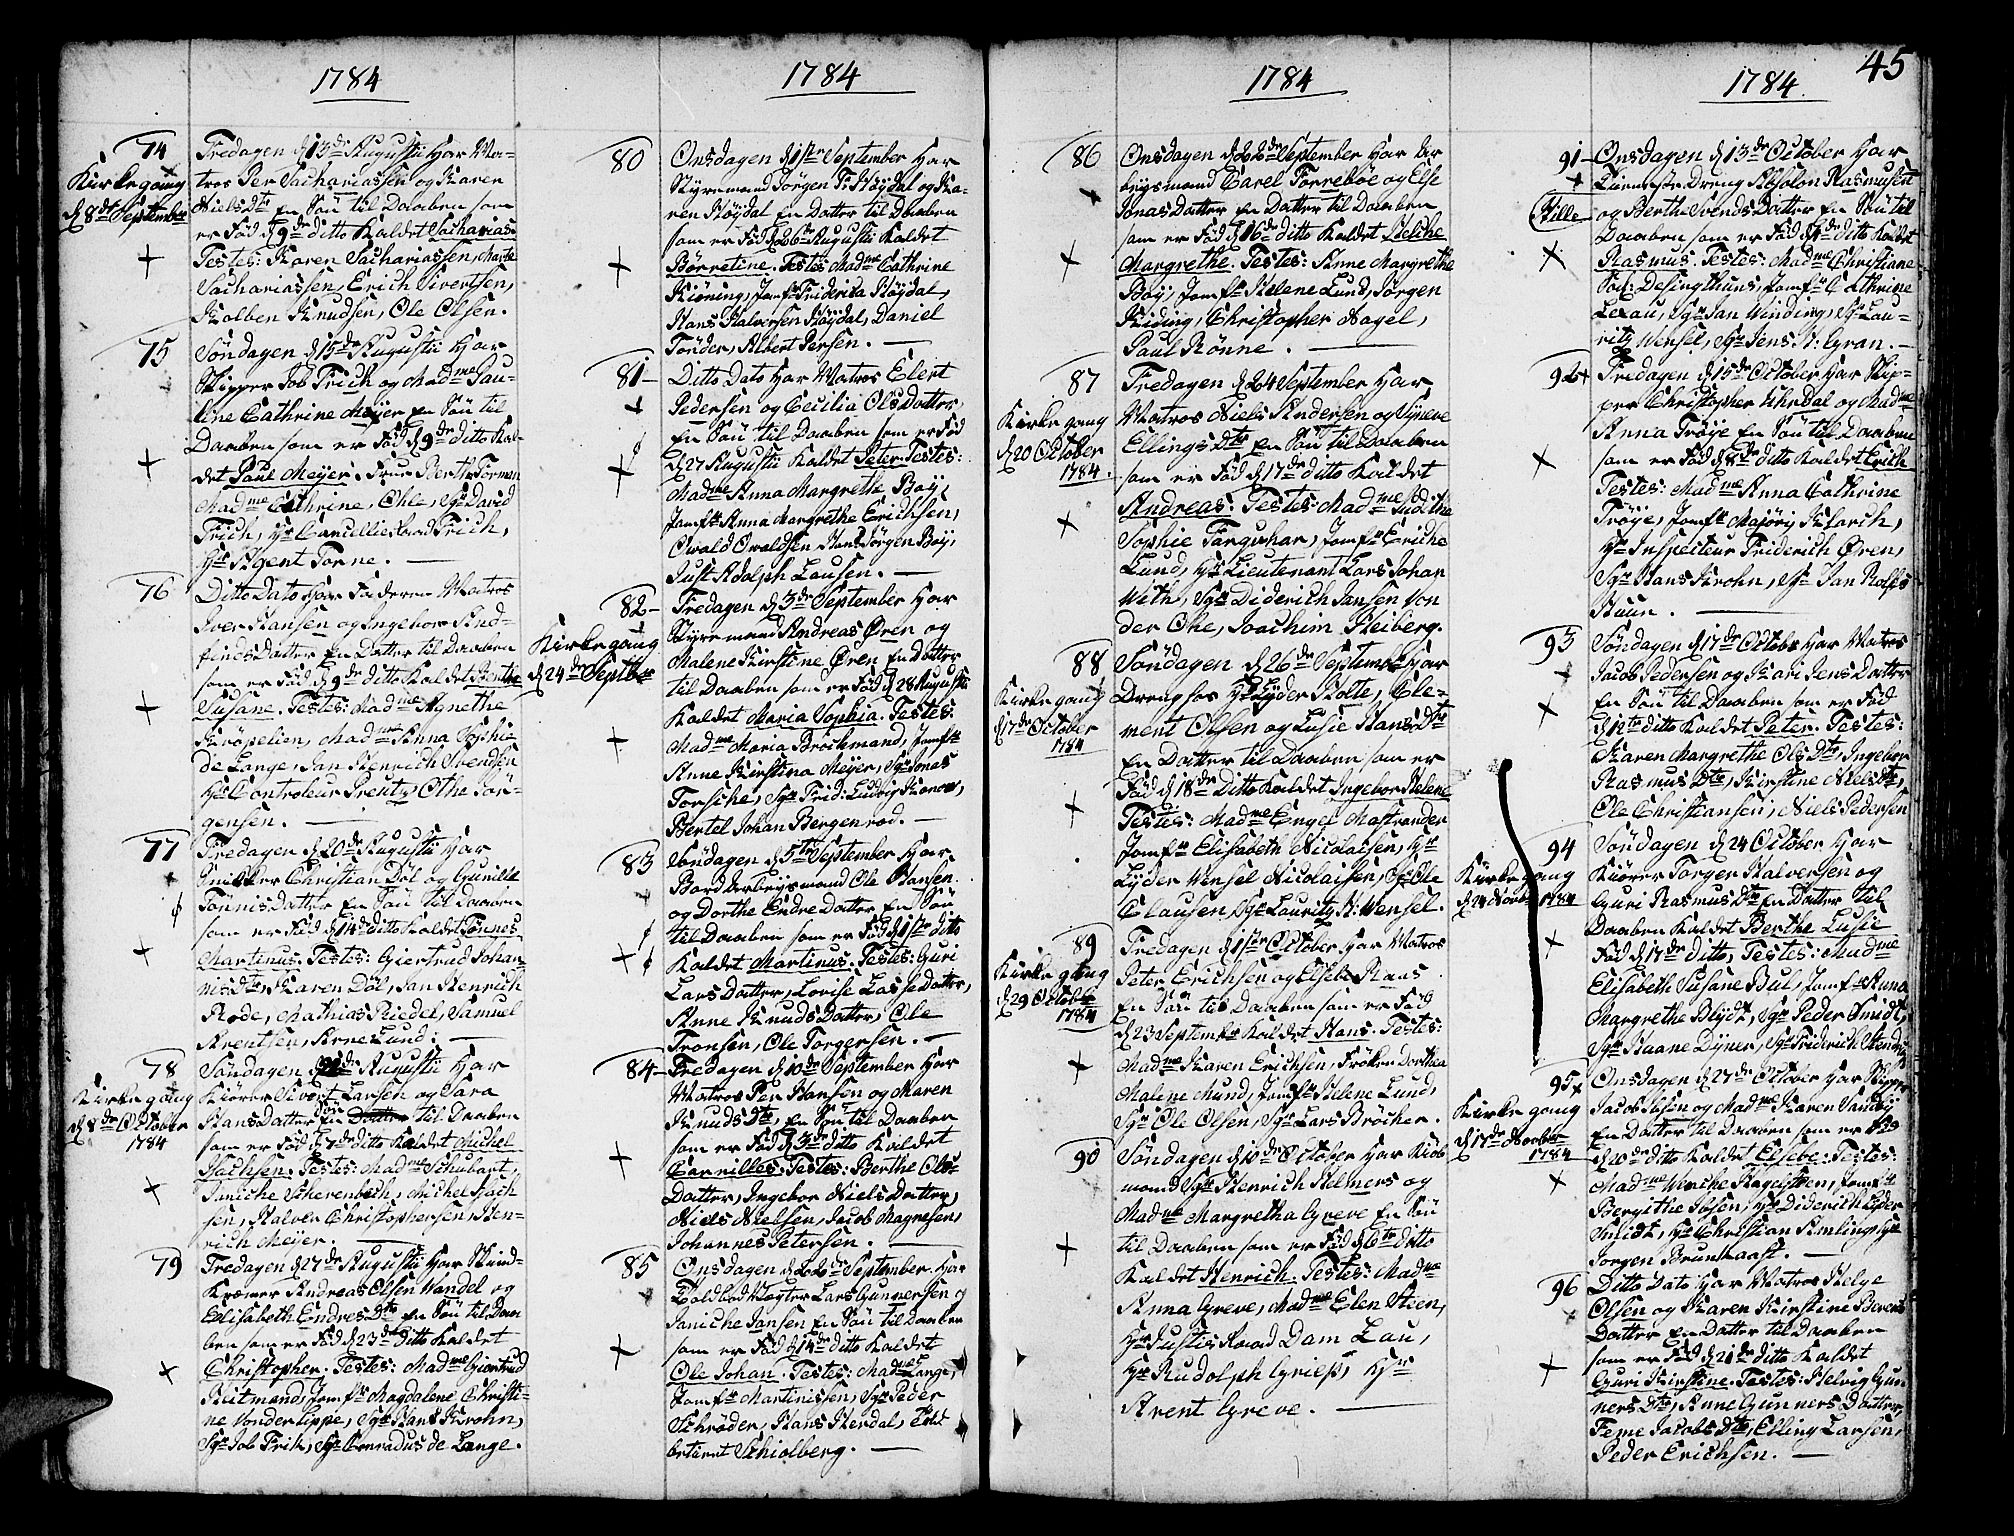 45
1784
74
Kirkegang
d 8de September
Fredagen d 13de Augusti har Ma-
tros Per Sachariassen og Karen
Niels Dtr En Søn til Daaben som
er Fød d 9de ditto Kaldet Sacharias.
Testes: Karen Sachariassen, Marte
Sachariassen, Erich Sivertsen,
Kolben Knudsen, Ole Olsen.
75
Søndagen d 15de Augusti har
Skipper Job Frich og Madme Pau-
line Cathrine Meyer En Søn til
Daaben som er Fød d 9de ditto Kal-
det Paul Meyer.
Madme Cathrine, Ohle, Sgr David
Frich, Hr Cancellie Raad Frich,
Hr Agent Forne.
76
Ditto Dato har Faderen Matros
Iver Hansen og Ingebor And-
finds Datter En Datter til Daaben
som er Fød d 9de ditto Kaldet Benthe
Susane. Testes: Madme Agnethe
Kröpelien, Madme Anna Sophie
De Lange, Jan Henrich Svendsen
Hr Controleur Preutz, Othe Jör-
gensen.
77
Fredagen d 20de Augusti har
Snidker Christian Döl og Gunille
Tönnis Datter En Søn til Daaben
som er Fød d 14de ditto Kaldet Tönnes
Martinus. Testes: Giertrud Johan
nis Dtr, Karen Döl, Jan Henrich
Rode, Mathias Riedel, Samuel
Arentsen, Arne Lund.
78
Kirkegang
d 8de October
1784
Søndagen d 22de Augusti har
Kiörer Sivert Larsen og Sara
Hans Datter En Søn til Daaben
som er Fød d 7de ditto Kaldet Michel
Sachsen. Testes: Madme Schubart,
Janiche Scherenbech, Michel Sach
sen, Halver Christophersen, Hen-
rich Meyer.
79
Fredagen d 27de Augusti har Skind-
Kræmer Andreas Olsen Wandel og
Elisabeth Endres Dtr En Søn til Daa
ben som er Fød d 23de ditto Kaldet
Christopher. Testes: Madme Giertrud
Rutmand, Jomfr Magdalene Christi-
ne Vonder Lippe, Sgr Hans Krohn,
Sgr Job Frik, Sgr Conradus de Lange.
1784
80
Onsdagen d 1ste September har
Styremand Jörgen F: Höydal og Ka-
ren Höydal En Datter til Daaben
som er Fød d 26de Augusti Kaldet
Börretine. Testes Madme Cathrine
Kiöning, Jomfr Friderica Höydal,
Hans Halversen Höydal, Daniel
Tönder, Albert Jersen.
81
Ditto Dato har Matros Elert
Pedersen og Cecilia Ols Datter
En Søn til Daaben som er Fød
d 27 Augusti Kaldet Peter. Testes:
Madme Anna Margrethe Böy,
Jomfr Anna Margrethe Erichsen,
Owald Owaldsen, Hans Jörgen Böy,
Just Adolph Lausen.
82
Kirkegang
d 24de Septbr
Fredagen d 3de September har
Styremand Andreas Ören og
Malene Kirstine Ören En Datter
til Daaben som er Fød d 28 Augusti
Kaldet Maria Sophia. Testes:
Madme Maria Bröchmand, Jomfr
Anne Kirstina Meyer, Sgr Jonas
Torsche, Sgr Frid: Ludvig Konow,
Bertel Johan Bergenrod.
83
Søndagen d 5te September har
Borderbeysmand Ole Hansen
og Dorthe Endre Datter En Søn
til Daaben som er Fød d 1ste ditto
Kaldet Martinus. Testes: Guri
Lars Datter, Lovise Lasse Datter,
Anne Knuds Datter, Ole
Tronsen, Ole Torgersen.
84
Fredagen d 10de September har
Matros Per Hansen og Maren
Knuds Dtr, En Søn til Daaben
som er Fød d 3de ditto Kaldet
Carnilles. Testes: Berthe Ols-
Datter, Ingebor Niels Datter,
Niels Nielsen, Jacob Magnesen,
Johannes Petersen.
85
Onsdagen d 22de September har
Toldbod Vægter Lars Gunnersen og
Janiche Jansen En Søn til Daaben
som er Fød d 14de ditto Kaldet
Ole Johan. Testes: Madme Lange,
Jomfr Martinissen, Sgr Peder
Schröder, Hans Herdal,
betient Schiolberg.
1784
86
Onsdagen d 22de September har Ar
beysmand Carel Torreböe og Else
Jonas Datter En Datter til Daaben
som er Fød d 16de ditto Kaldet Helche
Margrethe. Testes: Anne Margrethe
Böy, Jomfr Helene Lund, Jörgen
Kiding, Christopher Nagel,
Paul Rönne.
87
Kirkegang
d 20 October
1784.
Fredagen d 24 September har
Matros Niels Andersen og Signeve
Ellings Dtr En Søn til Daaben
som er Fød d 17de ditto Kaldet
Andreas. Testes: Madme Judithe
Sophie Farquhar, Jomfr Eriche
Lund, Hr Lieutenant Lars Johan
With, Sgr Diderich Jansen Von
der Ohe, Joachim Heiberg.
88
Kirkegang
d 17de October
1784
Søndagen d 26de September har
Dreng hos Hr Lyder Holte, Cle-
ment Olsen og Lusie Hans Dtr
En Datter til Daaben som er
Fød d 18de Ditto Kaldet Ingebor Helene
Testes: Madme Engel Mastrander
Jomfr Elisabeth Nicolaisen, Hr
Lyder Wensel Nicolaisen, Sgr Ole
Clausen, Sgr Lauritz H: Wensel.
89
Kirkegang
d 29 October
1784
Fredagen d 1ste October har Matros
Peter Erichsen og Elsebe Raas
En Søn til Daaben som er Fød
d 23 September Kaldet Hans. Testes:
Madme Karen Erichsen, Fröken Dorthea
Malene Mund, Jomfr Helene Lund,
Sgr Ole Olsen, Sgr Lars Bröcher.
90
Søndagen d 10de October har Kiöb
mand Sgr Henrich Helmers og
Madme Margretha Greve En Søn
til Daaben som er Fød d 6te ditto
Kaldet Henrich. Testes: Madme
Anna Greve, Madme Elen Steen,
Hr Justis Raad Dam Lau,
Hr Rudolph Grieß, Hr
Arent Greve.
1784
91
Stille
Onsdagen d 13de October har
Tienneste Dreng Absolon Rasmusen
og Berthe Svends Datter En Søn til
Daaben som er Fød d 1de ditto Kaldet
Rasmus. Testes: Madme Christiane
Sof: Desingthuns, Jomfr Cathrine
Lexau, Sgr Jan Winding, Sgr Lau-
ritz Wensel, Sgr Jens H: Gran.
92
Fredagen d 15de October har Skip-
per Christopher Uhrdal og Madme
Anna Tröye En Søn til Daaben
som er Fød d 8de ditto Kaldet Erich
Testes: Madme Anna Cathrine
Tröye, Jomfr Majory Klorch,
Hr Inspecteur Friderich Ören,
Sgr Hans Krohn, Sgr Jan Rolfs
Huun.
93
Søndagen d 17de October har Matros
Jacob Pedersen og Kari Jens Datter
En Søn til Daaben som er Fød
d 12te ditto Kaldet Peter. Testes:
Karen Margrethe Ols Dtr, Ingebor
Rasmus Dtr, Kirstine Niels Dtr,
Ole Christiansen, Niels Pedersen
94
Kirkegang
d 24 Novbr 1784
Søndagen d 24 October har
Kiörer Torger Halversen og
Guri Rasmus Dtr En Datter til
Daaben Kaldet Berthe Lusie
Fød d 17de ditto, Testes: Madme
Elisabeth Susane Bul, Jomfr Anna
Margrethe Blydt, Sgr Peder Smidt,
Sgr Haane Dyner, Sgr Friderich Hendr
95
Kirkegang
d 17de Novbr
1784
Onsdagen d 27de October har Skipper
Jacob Ibsen og Madme Karen Sandby
En Datter til Daaben som er Fød
d 20de ditto Kaldet Elsebe. Testes:
Madme Wenche Hagensteen, Jomfr
Bergithe Ibsen, Hr Diderich Peder
Smidt, Hr Christian Amling, Hr
Jorgen Brunkaast.
96
Ditto Dato har Matros Helge
Olsen og Karen Kirstine Berents
Datter En Datter til Daaben
som er Fød d 21de ditto Kaldet
Guri Kirstine. Testes: Helvig Gun
ners Dtr, Anne Gunners Datter,
Feme Jacobs Dtr, Elling Larsen,
Peder Erichsen.